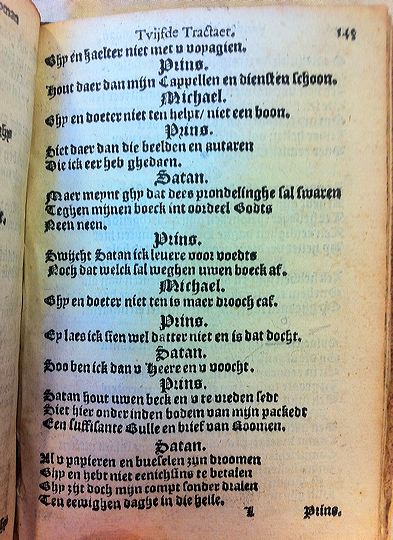 Tvijfde Tractaet. 145
Ghy en haelter niet met u vopagien.
Prins.
Hout daer dan mijn Cappellen en diensten schoon.
Michael.
Ghy en doeter niet ten helpt/ niet een boon.
Prins.
Siet daer dan die beelden en autaren
Die ick eer heb ghedaen.
Satan.
Maer meynt ghy dat dees prondelinghe sal swaren
Teghen mijnen boeck int oordeel Godts
Neen neen.
Prins.
Swijcht Satan ick levere voor voedts
Noch dat welck sal weghen uwen boeck af.
Michael.
Ghy en doeter niet ten is maer drooch caf.
Prins.
Ey laes ick sien wel datter niet en is dat docht.
Satan.
Soo ben ick dan u Heere en u voocht.
Prins.
Satan hout uwen beck en u te vreden sedt
Siet hier onder inden bodem van mijn packedt
Een suffisante Bulle en brief van Roomen.
Satan.
Al u papieren en bueselen zijn droomen
Ghy en hebt niet eenichsins te betalen
Ghy zijt doch mijn compt sonder dralen
Ten eewighen daghe in die helle.
L Prins.